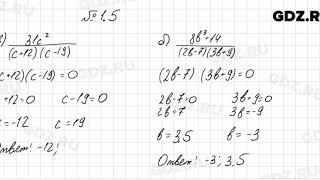 GDZ.RU
№ 1.5
) 31c² / ((c+12)(c-19))
c+12)(c-19)=0
+12=0 c-19=0
=-12 c=19
твет: -12;
б) 8b³+14 / ((2b-7)(3b+9))
(2b-7) (3b+9)=0
2b-7=0 3b+9=0
2b=7 3b=-9
b=3,5 b=-3
Ответ: -3; 3,5